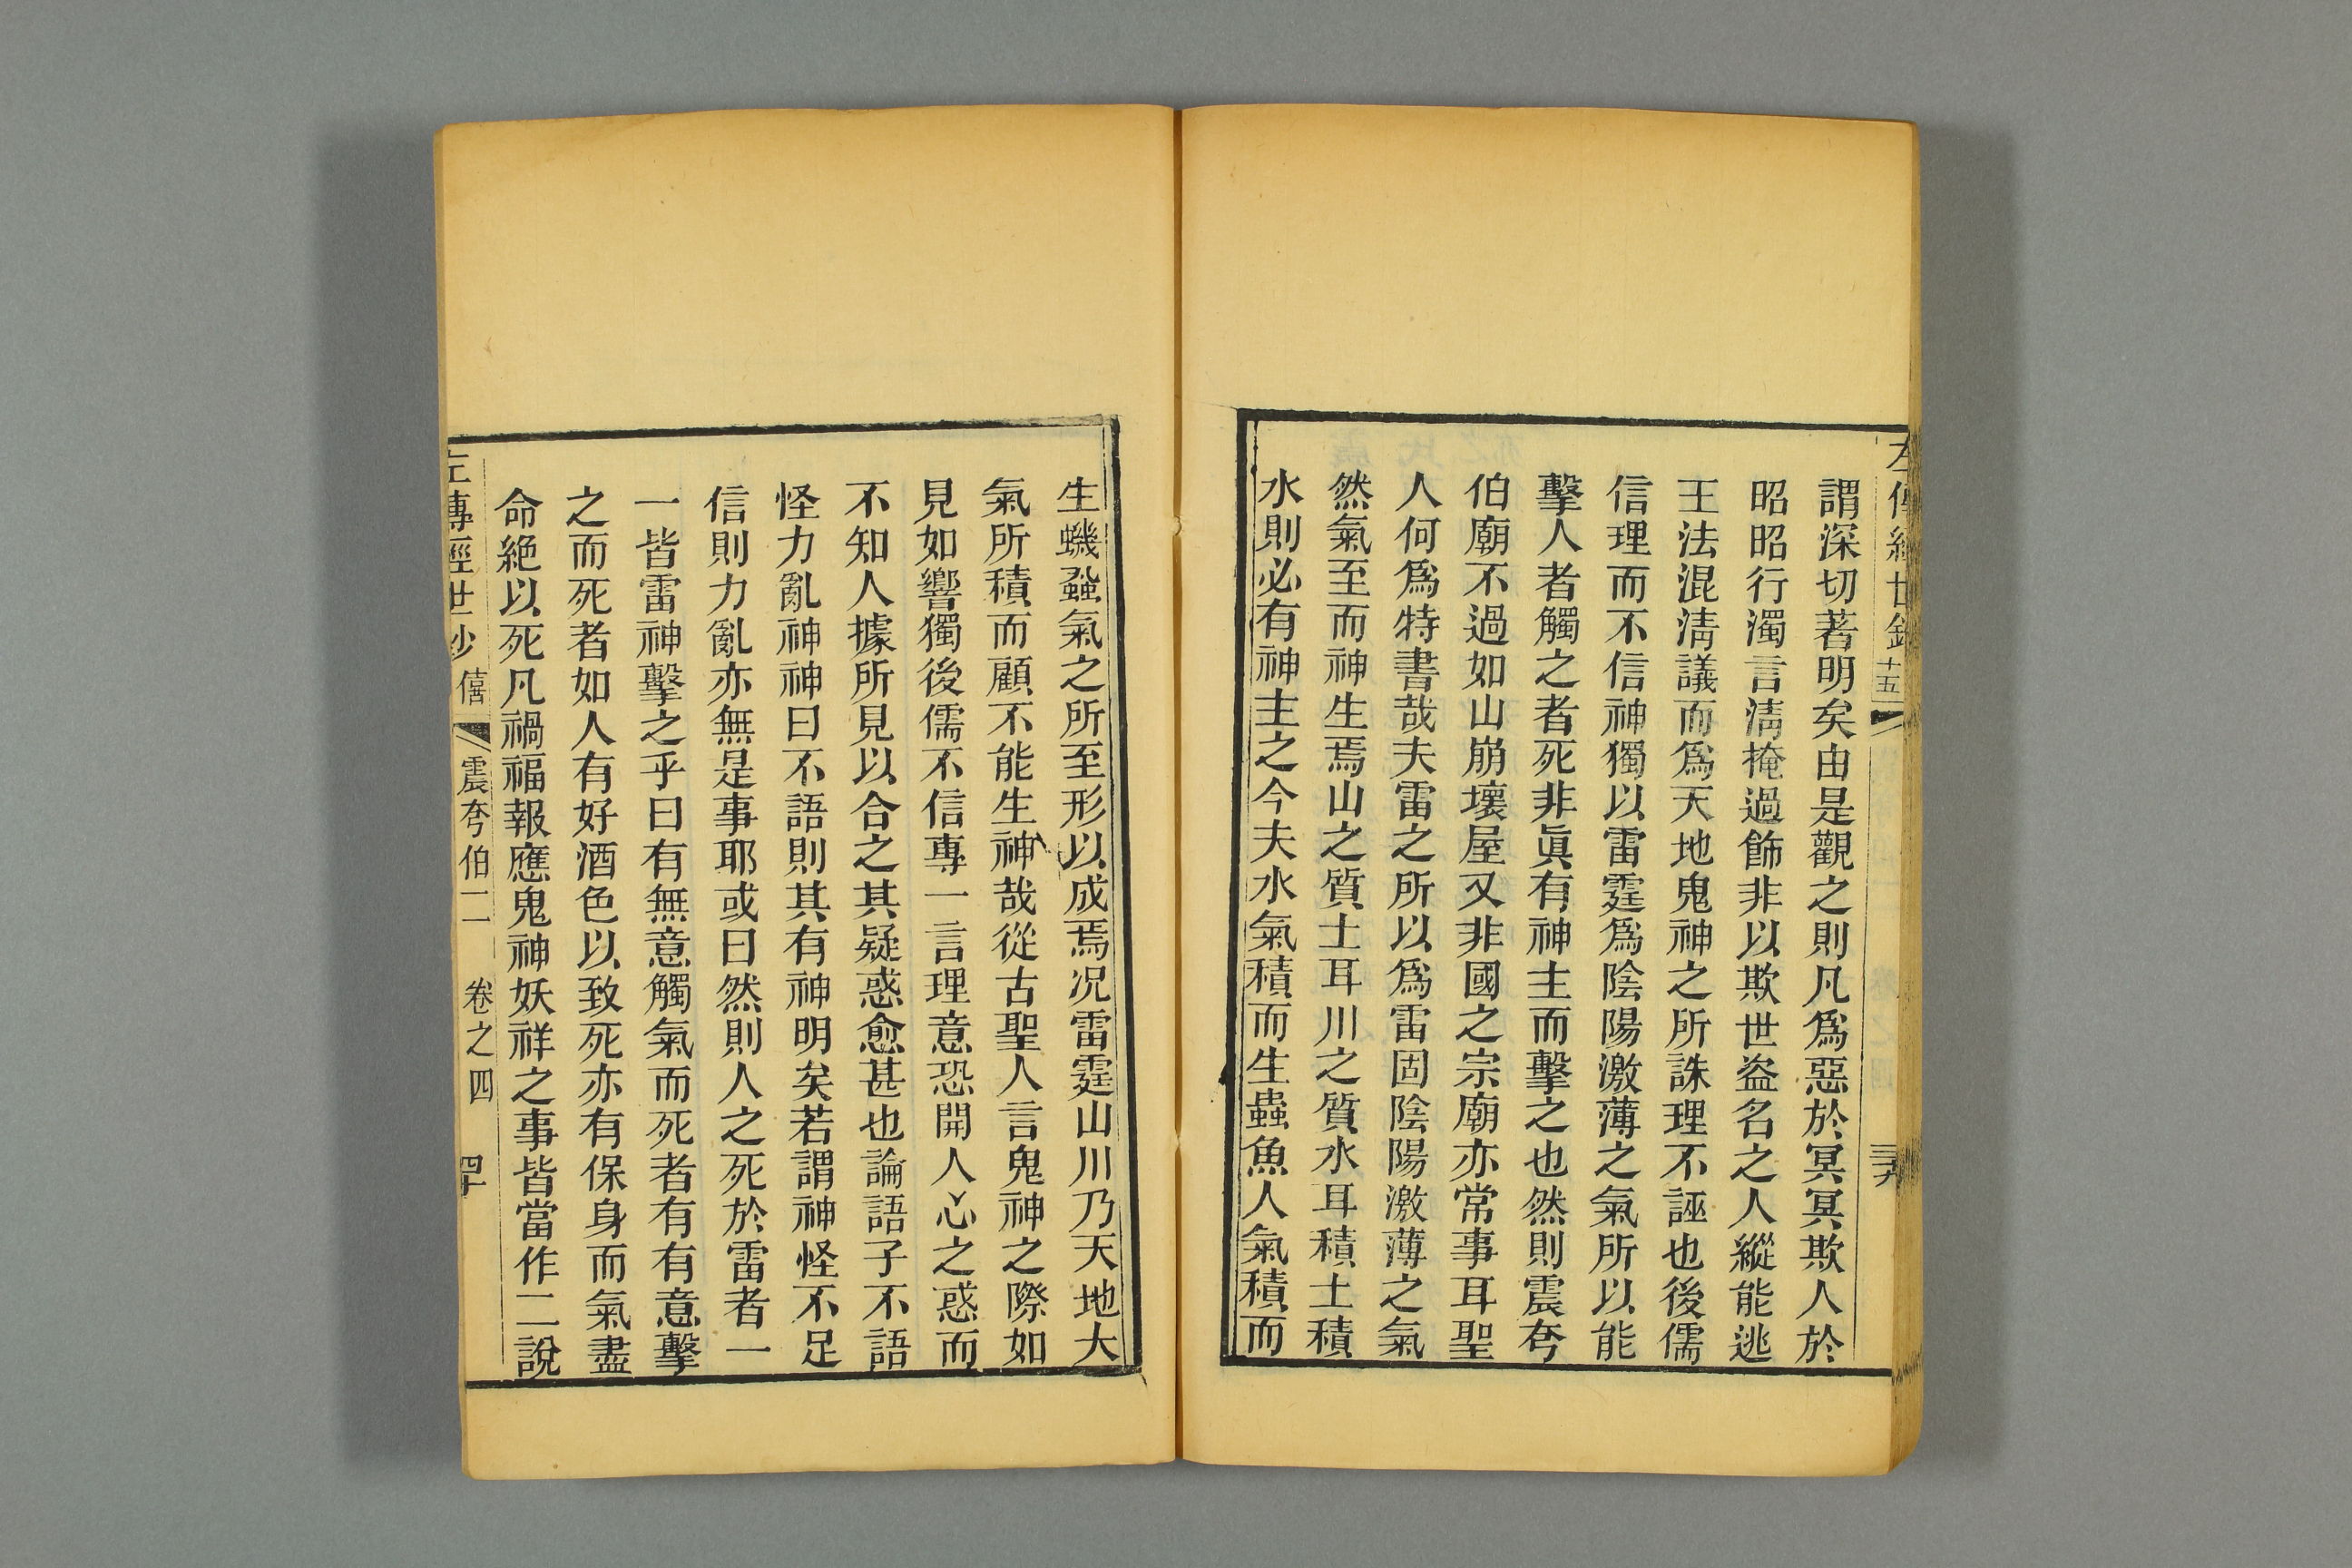 謂深切著明矣由是觀之則凡爲惡於冥冥欺人於
昭昭行濁言淸掩過飾非以欺世盜名之人縱能逃
王法混淸議而爲天地鬼神之所誅理不誣也後儒
信理而不信神獨以雷霆爲陰陽激薄之氣所以能
擊人者觸之者死非眞有神主而擊之也然則震夸
伯廟不過如山崩壞屋又非國之宗廟亦常事耳聖
人何爲特書哉夫雷之所以爲雷固陰陽激薄之氣
然氣至而神生焉山之質土耳川之質水耳積土積
水則必有神主之今夫水氣積而生蟲魚人氣積而
生蟣蝨氣之所至形以成焉况雷霆山川乃天地大
氣所積而顧不能生神哉從古聖人言鬼神之際如
見如響獨後儒不信專一言理意恐開人心之惑而
不知人據所見以合之其疑惑愈甚也論語子不語
怪力亂神神曰不語則其有神明矣若謂神怪不足
信則力亂亦無是事耶或曰然則人之死於雷者一
一皆雷神擊之乎曰有無意觸氣而死者有有意擊
之而死者如人有好酒色以致死亦有保身而氣盡
命絶以死凡禍福報應鬼神妖祥之事皆當作二說
傳經世鈔 僖 震夸伯二 卷之四 四十